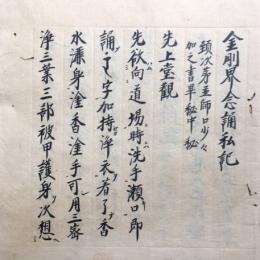 金剛界念誦私記
頸次房並師口少々
加之書畢秘中秘
先上堂觀
先欲向道場時洗手漱口即
誦 字加持淨衣着了香
水灑身塗香塗手可用三密
淨三業三部被甲護身次想